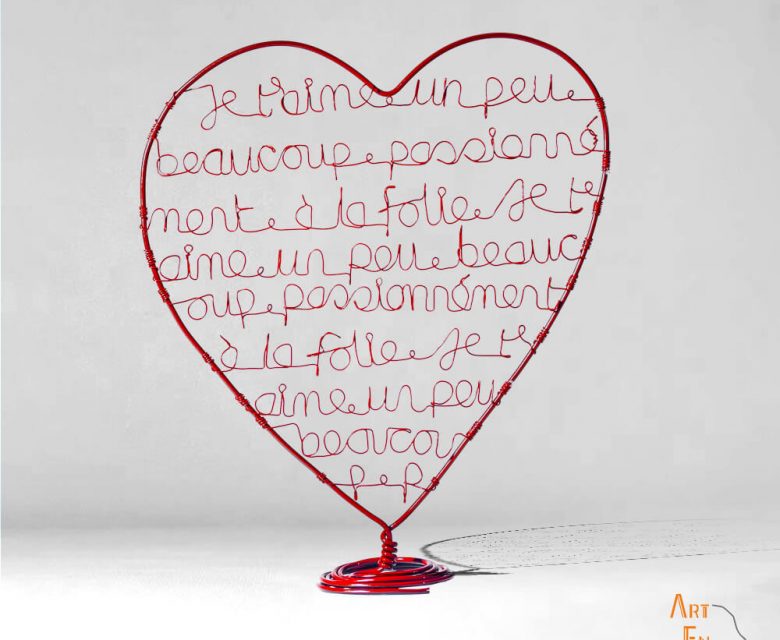 Je t'aime un peu
beaucoup passionné
ment à la folie Je t'
aime un peu beauc
oup passionnément
à la folie Je t'
aime un peu
beaucou
p e p
ART
EN